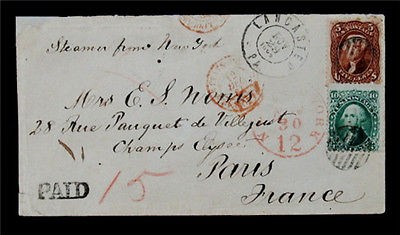 Steamer from New York
LANCASTER
PA
Mrs E. S. Norris
28 Rue Pauquet de Villejust
Champs Elysee
Paris
France
PAID
15
30
12
5
10